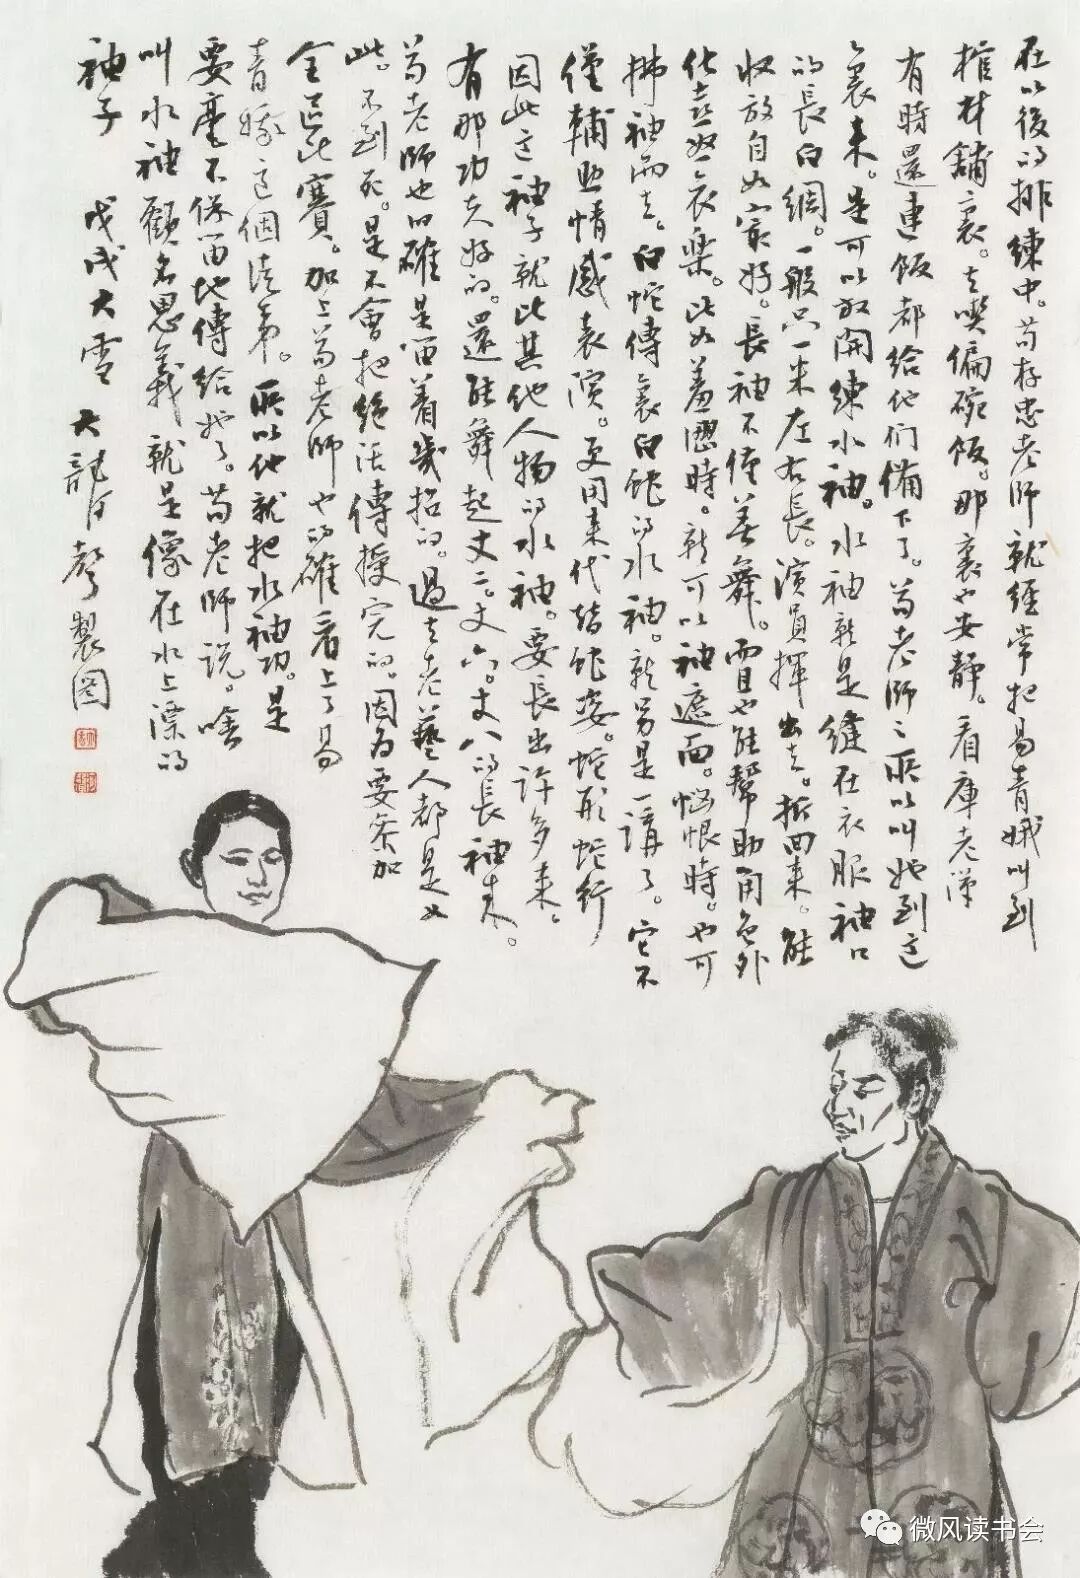 在以後的排練中。苟存忠老師就經常把易青娥叫到
棺材鋪裏。去喫偏碗飯。那裏也安靜。看庫老漢
有時還連飯都給他们備下了。苟老師之所以叫她到這
裏来。是可以放開練水袖。水袖就是縫在衣服袖口
的長白綢。一般只一米左右長。演員揮出去。抓回来。能
收放自如最好。長袖不僅善舞。而且也能幫助角色外
化喜怒哀樂。比如羞澀時。就可以袖遮面。惱恨時。也可
拂袖而去。白蛇傳裏白蛇的水袖。就另是一講了。它不
僅輔助情感表演。更用来代替蛇姿。蛇形蛇行
因此這袖子就比其他人物的水袖。要長出許多来。
有那功夫好的。還能舞起丈二。丈六。丈八的長袖来。
苟老師也的確是留着幾招的。過去老藝人都是如
此。不到死。是不會把絕活傳授完的。因为要参加
全區比賽。加上苟老師也的確看上了易
青娥這個徒弟。所以他就把水袖功。是
要毫不保留地傳給她了。苟老師说。啥
叫水袖顧名思義就是像在水上漂的
袖子 戊戌大雪 大龍 聲製图
微风读书会